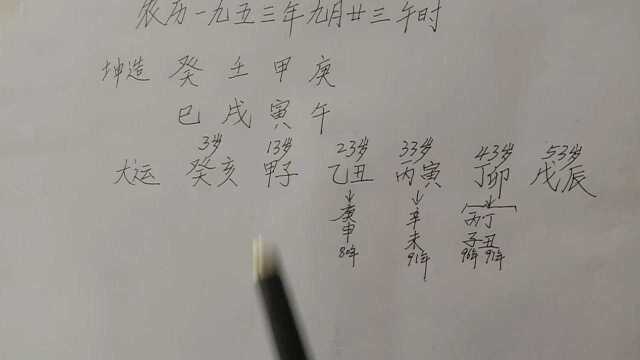 农历一九五三年九月廿三午时
坤造 癸 壬 甲 庚
巳 戌 寅 午
3岁 13岁 23岁 33岁 43岁 53岁
大运 癸亥 甲子 乙丑 丙寅 丁卯 戊辰
庚申 辛未 丙子 丁丑
80年 91年 96年 91年